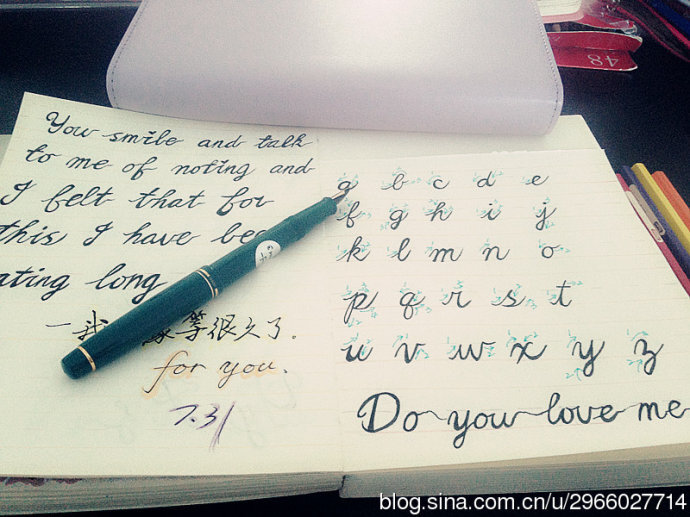 You smile and talk
to me of noting and
I felt that for
this I have bee
ating long
一我 等很久了.
for you.
7.31
a b c d e
f g h i j
k l m n o
p q r s t
u v w x y z
Do you love me
48
blog.sina.com.cn/u/2966027714